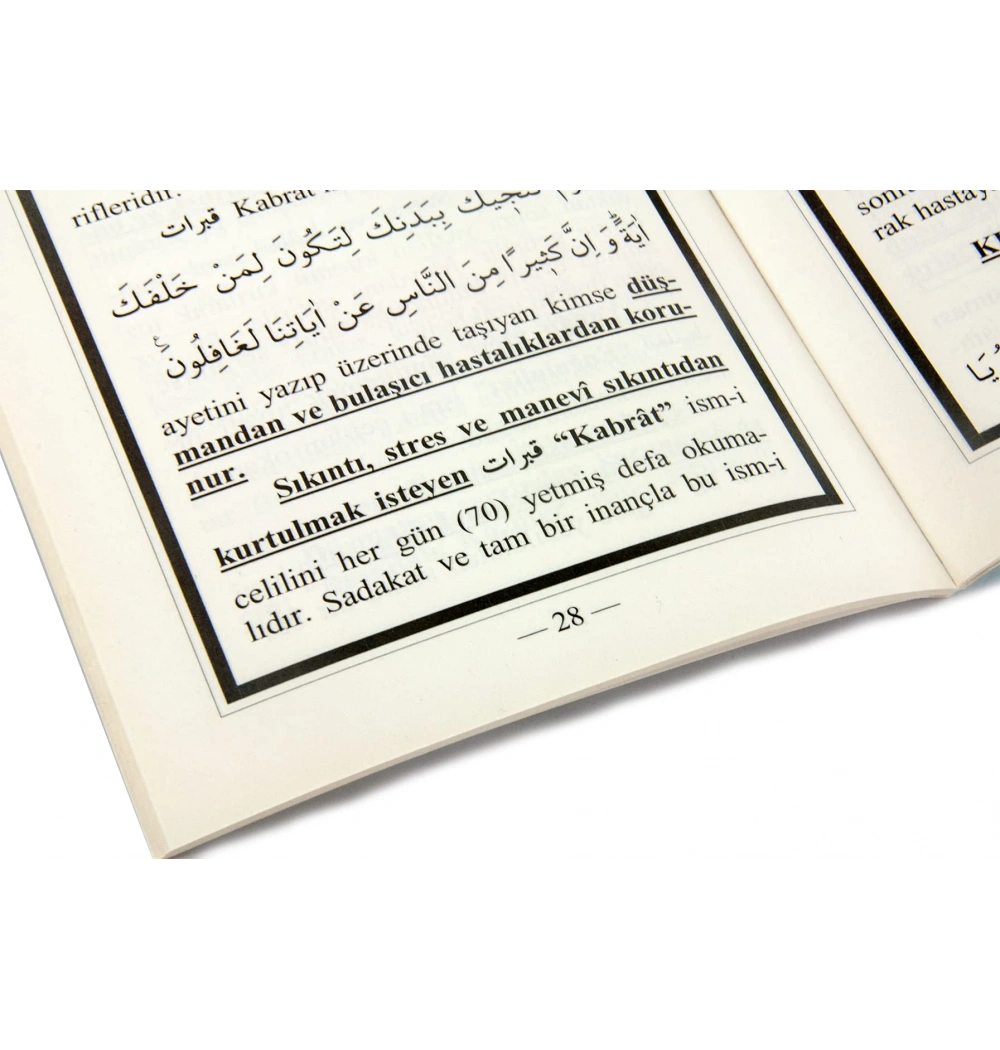 rifleridir.
قبرات Kabrat
نُنَجِّيكَ بِبَدَنِكَ لِتَكُونَ لِمَنْ خَلْفَكَ
اٰيَةً وَ اِنَّ كَثِيرًا مِنَ النَّاسِ عَنْ اٰيَاتِنَا لَغَافِلُونَ
ayetini yazıp üzerinde taşıyan kimse düş-
mandan ve bulaşıcı hastalıklardan koru-
nur.
Sıkıntı, stres ve manevî sıkıntıdan
kurtulmak isteyen قبرات “Kabrât” ism-i
celilini her gün (70) yetmiş defa okuma-
lıdır. Sadakat ve tam bir inançla bu ism-i
— 28 —
rak hastay